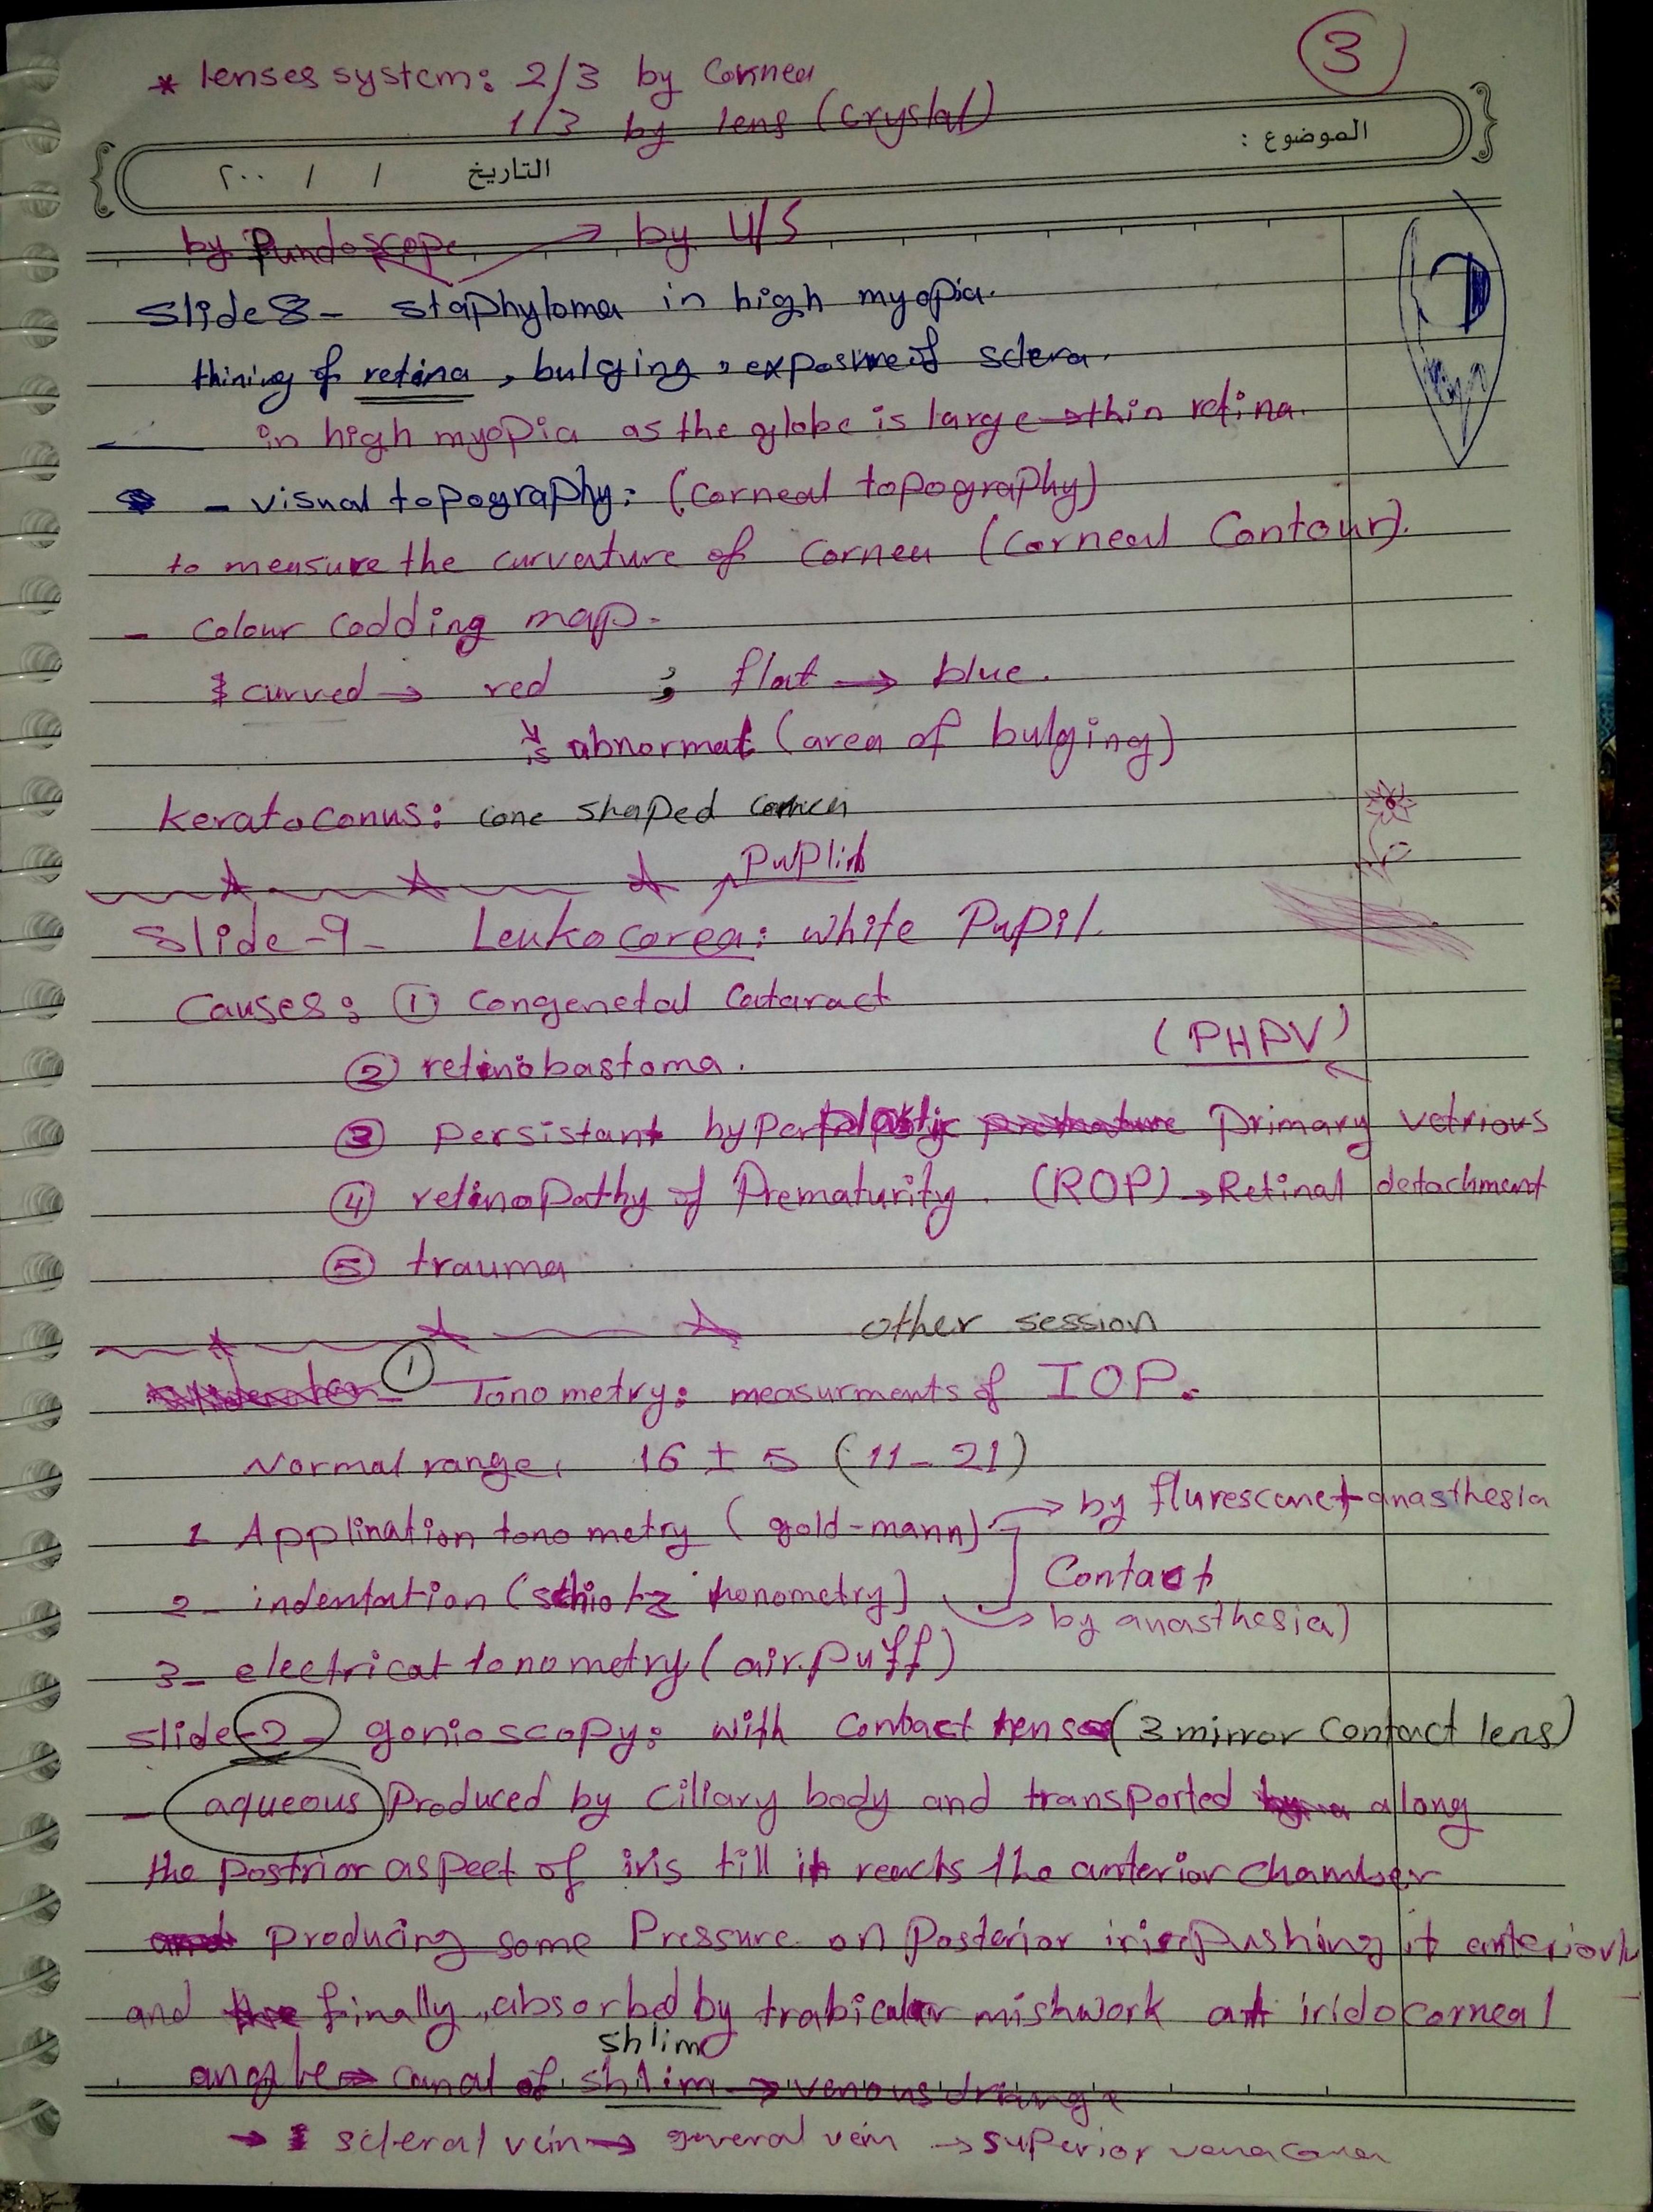 * lenses system: 2/3 by Cornea
3
1/3 by lens (crystal)
الموضوع :
التاريخ / / ٢٠٠
by Fundoscope → by U/S
Slide 8- staphyloma in high myopia.
thining of retina, bulging, exposure of sclera.
in high myopia as the globe is large → thin retina.
- visual topography: (corneal topography)
to measure the curvature of cornea (corneal Contour).
- Colour codding map.
curved → red ; flat → blue.
is abnormal (area of bulging)
keratoconus: cone shaped cornea
puplid
Slide -9- Leukocorea: white Pupil.
Causes: ① Congenetal Cataract
② retinobastoma.
(PHPV)
③ persistant hyperplastic primary vetrious
④ retinopathy of Prematurity. (ROP) → Retinal detachment
⑤ trauma
other session
① Tonometry: measurments of IOP.
Normal range: 16 ± 5 (11 - 21)
1 Applination tonometry (gold-mann) → by flurescene + anasthesia
Contact
2- indentation (schiotz tonometry) → by anasthesia)
3- electrical tonometry (air.puff)
slide -2- gonioscopy: with contact lens (3 mirror contact lens)
- aqueous Produced by ciliary body and transported along
the postrior aspect of iris till it reachs the anterior chamber
Producing some Pressure on Posterior iris pushing it anteriorly
and finally, absorbed by trabicular mishwork at iridocorneal
shlim
angle → canal of shlim → venous driange
→ scleral vein → general vein → superior vena cava